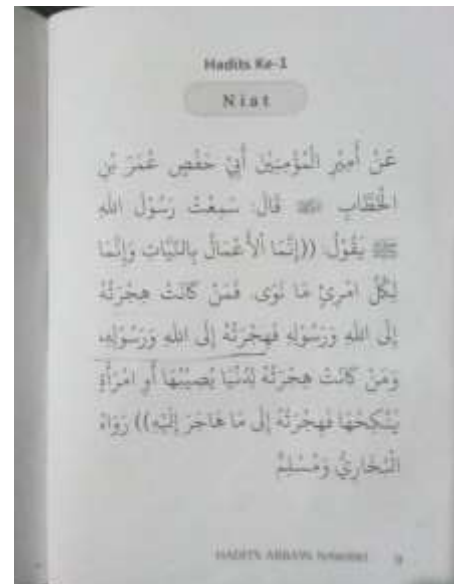 Hadits Ke-1
Niat
عَنْ أَمِيْرِ الْمُؤْمِنِيْنَ أَبِيْ حَفْصٍ عُمَرَ بْنِ
الْخَطَّابِ ﷺ قَالَ: سَمِعْتُ رَسُوْلَ اللهِ
ﷺ يَقُوْلُ: ((إِنَّمَا اْلأَعْمَالُ بِالنِّيَّاتِ وَإِنَّمَا
لِكُلِّ امْرِئٍ مَا نَوَى. فَمَنْ كَانَتْ هِجْرَتُهُ
إِلَى اللهِ وَرَسُوْلِهِ فَهِجْرَتُهُ إِلَى اللهِ وَرَسُوْلِهِ،
وَمَنْ كَانَتْ هِجْرَتُهُ لِدُنْيَا يُصِيْبُهَا أَوِ امْرَأَةٍ
يَنْكِحُهَا فَهِجْرَتُهُ إِلَى مَا هَاجَرَ إِلَيْهِ)) رَوَاهُ
الْبُخَارِيُّ وَمُسْلِمٌ
HADITS ARBA'IN NAWAWI